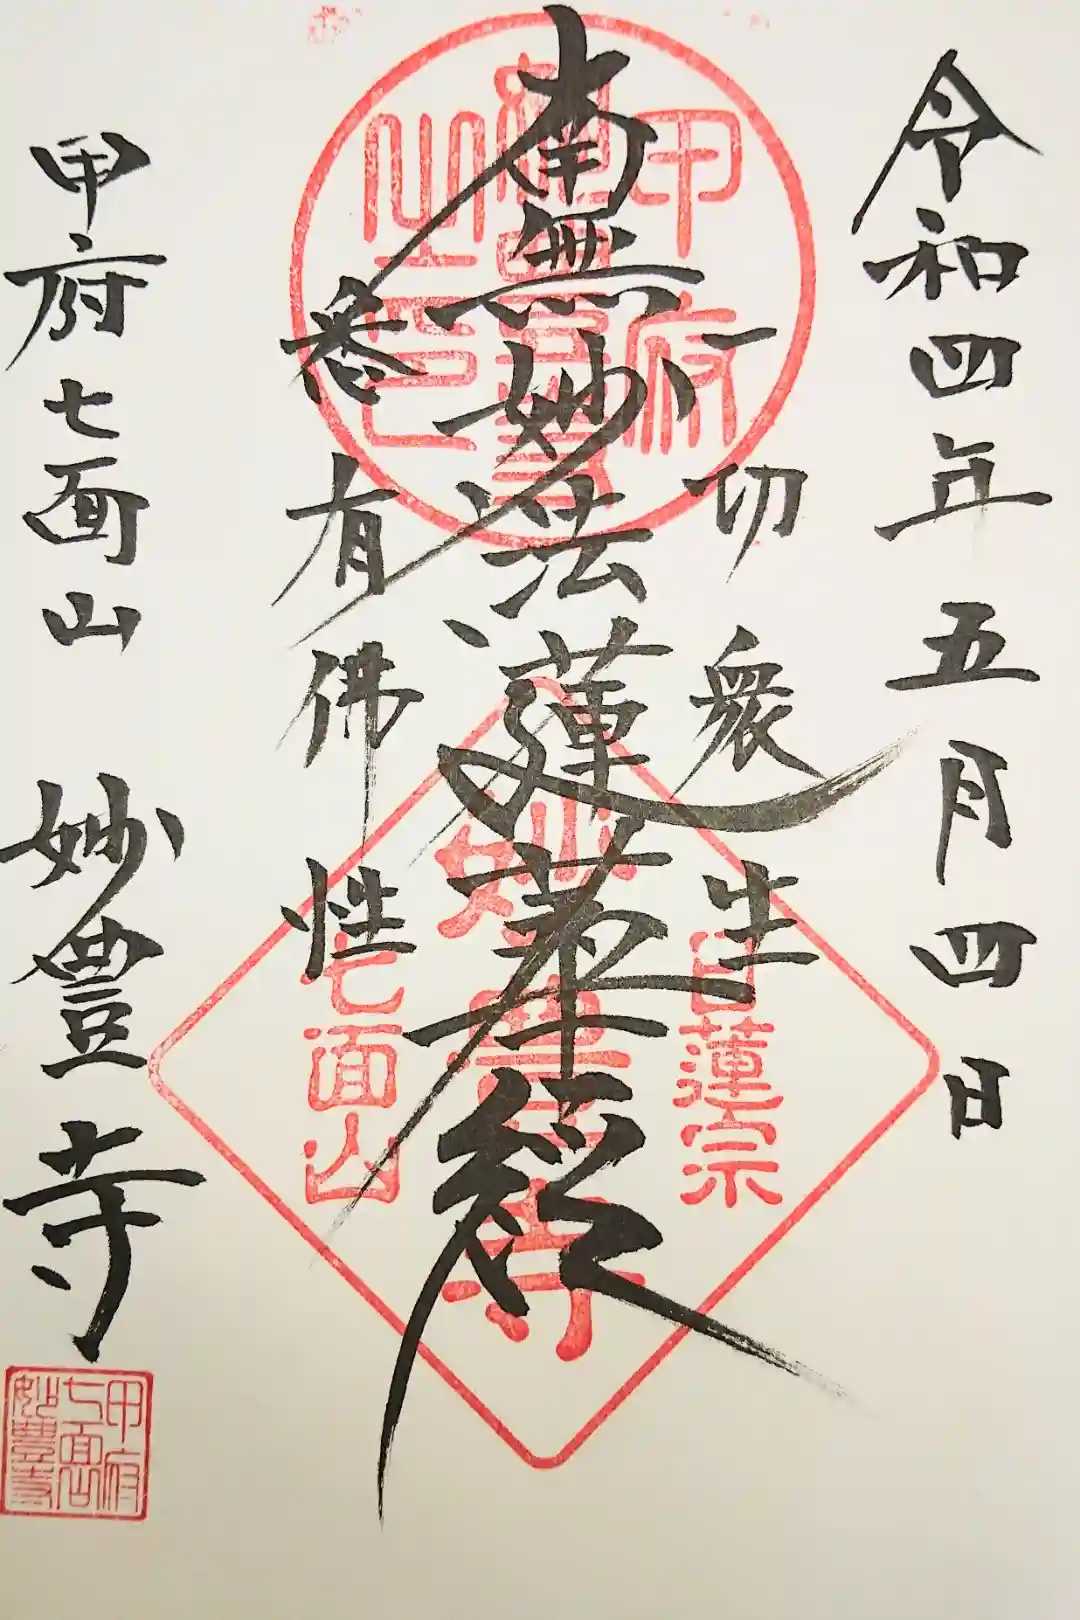 令和四年五月四日
一切衆生
南無妙法蓮華経
番有佛性
甲府七面山 妙豊寺
甲府
之印
日蓮宗
妙豊寺
七面山
甲府
七面山
妙豊寺